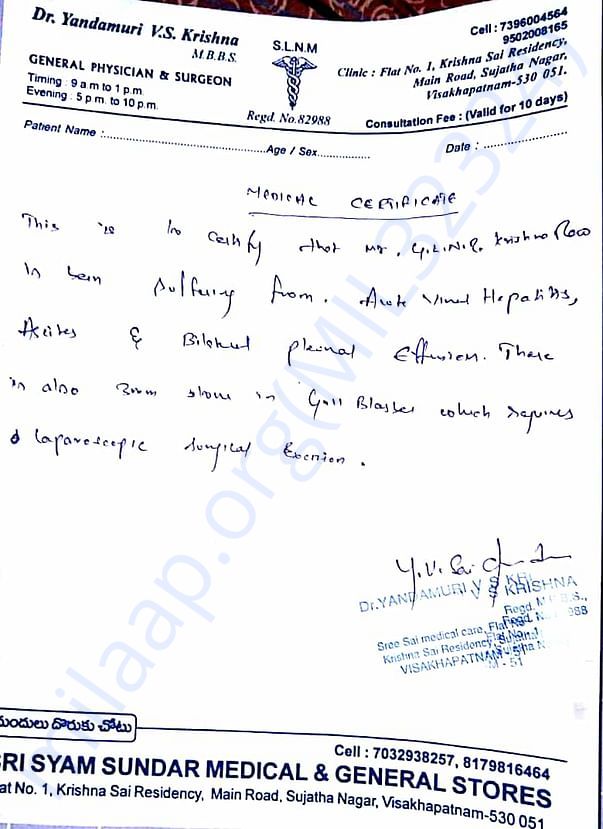 Dr. Yandamuri V.S. Krishna
M.B.B.S.
GENERAL PHYSICIAN & SURGEON
Timing : 9 a m to 1 p.m.
Evening : 5 p.m. to 10 p.m.
S.L.N.M
Regd. No.82988
Cell : 7396004564
9502008165
Clinic : Flat No. 1, Krishna Sai Residency,
Main Road, Sujatha Nagar,
Visakhapatnam-530 051.
Consultation Fee : (Valid for 10 days)
Patient Name :
Age / Sex
Date :
MEDICAL CERTIFICATE
This is to certify that Mr. G.L.N.R. Krishna Rao
is been suffering from. Acute Viral Hepatitis,
Ascites & Bilateral pleural Effusion. There
is also 3mm stone in Gall Bladder which requires
laparoscopic surgical Excision.
Y.V. Sai
Dr.YANDAMURI V S KRISHNA
Sree Sai medical care, Flat No.1
Krishna Sai Residency, Sujatha
VISAKHAPATNAM - 51
milaap.org(MIL32324
మందులు దొరుకు చోటు
Cell : 7032938257, 8179816464
SRI SYAM SUNDAR MEDICAL & GENERAL STORES
Flat No. 1, Krishna Sai Residency, Main Road, Sujatha Nagar, Visakhapatnam-530 051